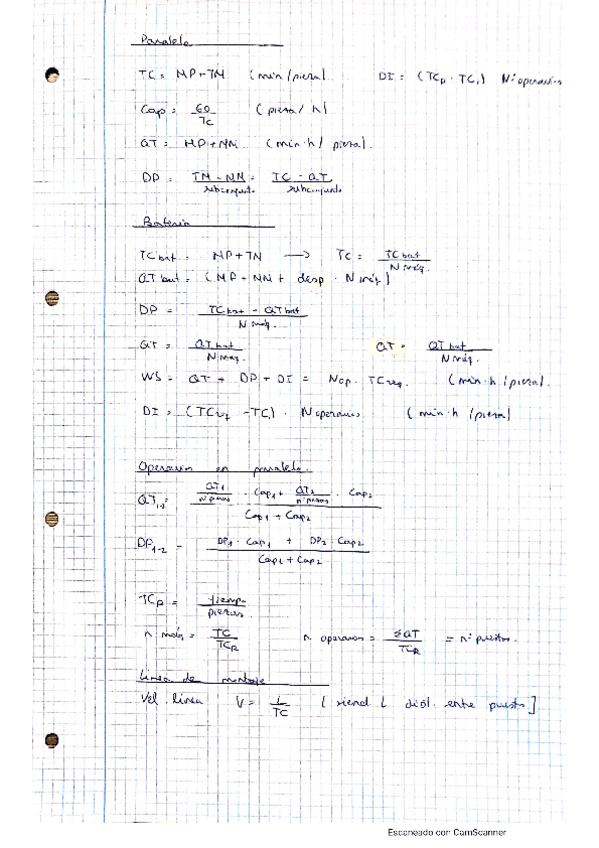 Paralelo
TC = MP + TN (min/pieza) DI = (TCp - TC1) Nº operarios
Cap = 60/TC (pieza/h)
QT = MP + NN (min·h/pieza)
DP = TM - NN/subconjunto = TC - QT/subconjunto
Batería
TC bat = MP + TN → TC = TC bat/N máq.
QT bat = (MP - NN + desp · N máq)
DP = TC bat - QT bat/N máq.
QT = QT bat/N maq. QT = QT bat/N máq.
WS = QT + DP + DI = Nop · TC (min·h/pieza).
DI = (TC - TC) · N operarios (min·h/pieza)
Operarios en paralelo.
QT1-2 = QT1/nºpersos · Cap1 + QT2/nºpersos · Cap2/Cap1 + Cap2
DP1-2 = DP1 · Cap1 + DP2 · Cap2/Cap1 + Cap2
TCR = tiempo/piezas
n máq = TC/TCR n operarios = ΣQT/TCR = nº puestos.
Línea de montaje
Vel. línea V = L/TC [siend L dist. entre puesto]
Escaneado con CamScanner